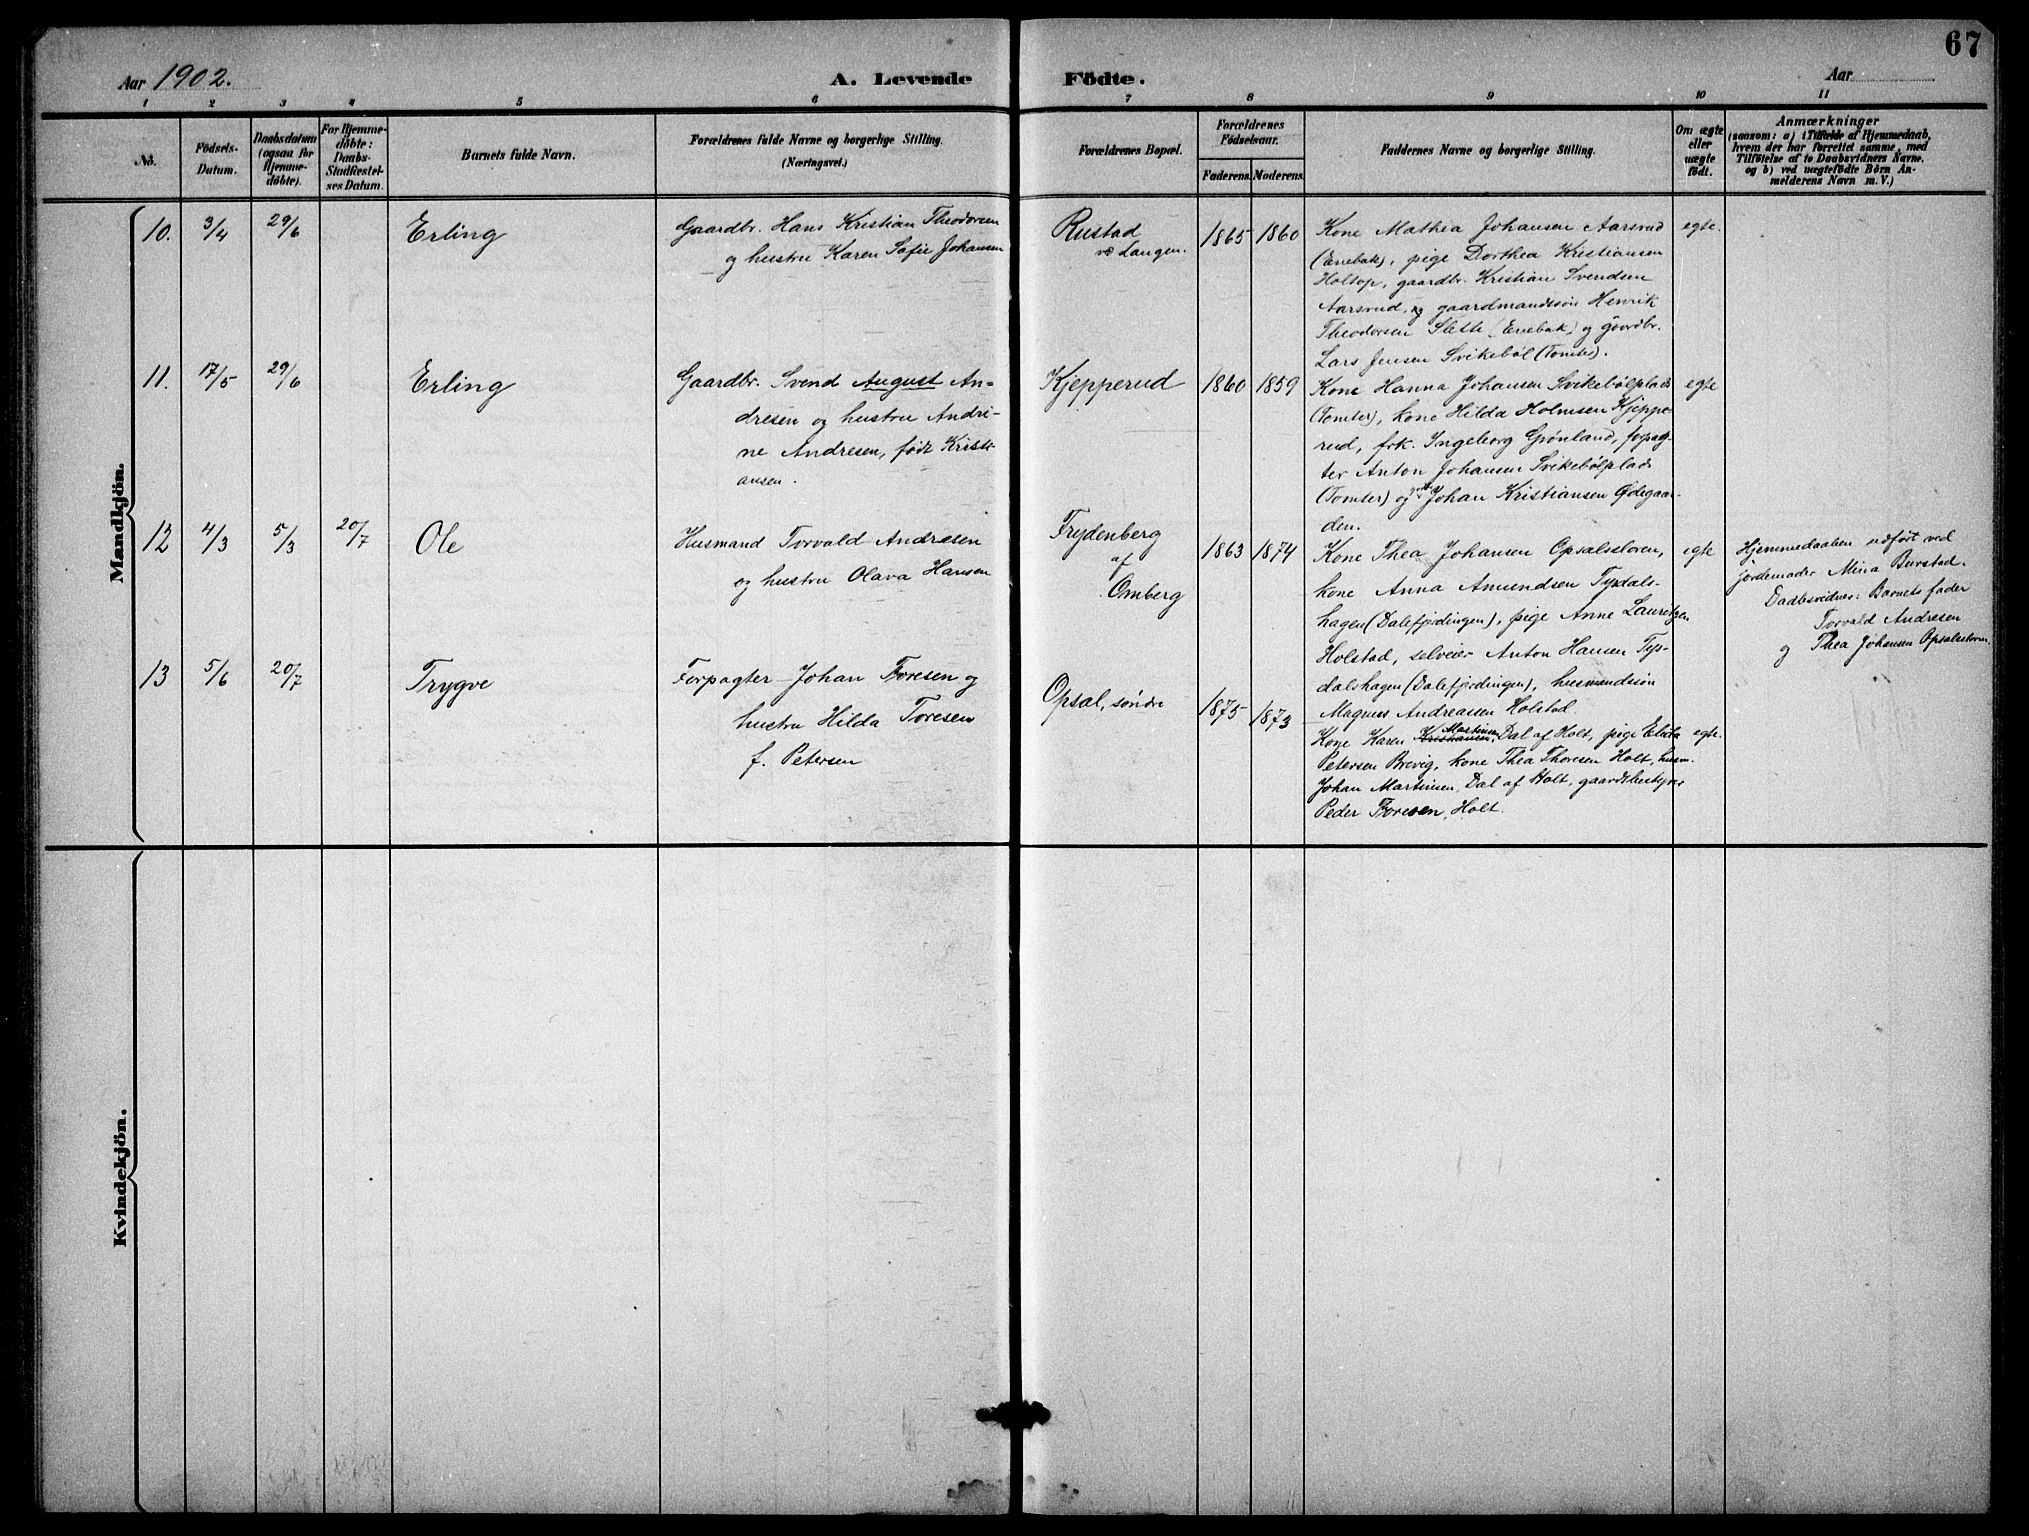 67
Aar 1902.
A. Levende Födte.
Aar
1 2 3 4 5 6 7 8 9 10 11
No.
Födsels-
Datum.
Daabsdatum
(ogsaa for
Hjemme-
döbte).
For Hjemme-
döbte:
Daabs-
Stadfæstel-
ses Datum.
Barnets fulde Navn.
Forældrenes fulde Navne og borgerlige Stilling.
(Næringsvei.)
Forældrenes Bopæl.
Forældrenes
Födselsaar.
Faderens. Moderens.
Faddernes Navne og borgerlige Stilling.
Om ægte
eller
uægte
födt.
Anmærkninger
(saasom: a) i Tilfælde af Hjemmedaab,
hvem der har forrettet samme, med
Tilföielse af to Daabsvidners Navne.
og b) ved uægtefödte Börn An-
melderens Navn m. V.)
Mandkjön.
10. 3/4 29/6 Erling
Gaardbr. Hans Kristian Theodorsen
og hustru Karen Sofie Johansen
Rustad
v. Langen.
1865 1860
Kone Mathea Johansen Aarsrud
(Enebak), pige Dorthea Kristiansen
Holtop, gaardbr. Kristian Svendsen
Aarsrud, og gaardmandssøn Henrik
Theodorsen Slette (Enebak) og gaardbr.
Lars Jensen Svikebøl (Tomter).
egte.
11. 17/5 29/6 Erling
Gaardbr. Svend August An-
dresen og hustru Andri-
ne Andresen, født Kristi-
ansen.
Kjepperud
1860 1859
Kone Hanna Johansen Svikebølplads
(Tomter), kone Hilda Holmsen Kjeppe-
rud, frk. Ingeborg Grønland, forpag-
ter Anton Johansen Svikebølplads
(Tomter) og Johan Kristiansen Ødegaar-
den.
egte
12 4/3 5/3 20/7 Ole
Husmand Torvald Andresen
og hustru Olava Hansen
Frydenberg
af
Omberg
1863 1874
Kone Thea Johansen Opsalssloren,
kone Anna Amundsen Tysdals-
hagen (Dalefjerdingen), pige Anne Lauretzen
Holstad, selveier Anton Hansen Tys-
dalshagen (Dalefjerdingen), husmandssøn
Magnus Andreassen Holstad.
egte
Hjemmedaaben udført ved
jordemoder Mina Burstad.
Daabsvidner: Barnets fader
Torvald Andresen
og Thea Johansen Opsalssloren.
13 5/6 20/7 Trygve
Forpagter Johan Thoresen og
hustru Hilda Toresen
f. Petersen
Opsal, søndre
1875 1873
Kone Karen Kristiansen Martinsen, Dal af Holt, pige Elida
Petersen Brevig, kone Thea Thoresen Holt, husm.
Johan Martinsen, Dal af Holt, gaardsbestyrer
Peder Thoresen, Holt.
egte.
Kvindekjön.